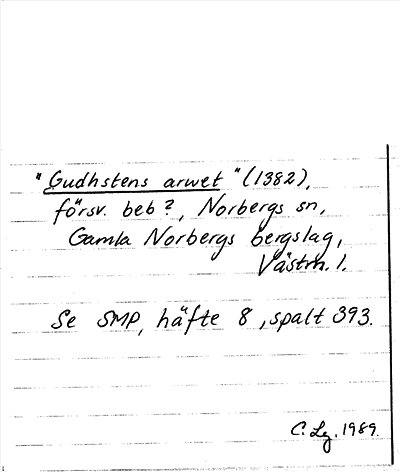 "Gudhstens arwet" (1382),
försv. beb?, Norbergs sn,
Gamla Norbergs bergslag,
Västm. l.
Se SMP, häfte 8, spalt 393.
C. Lg. 1989